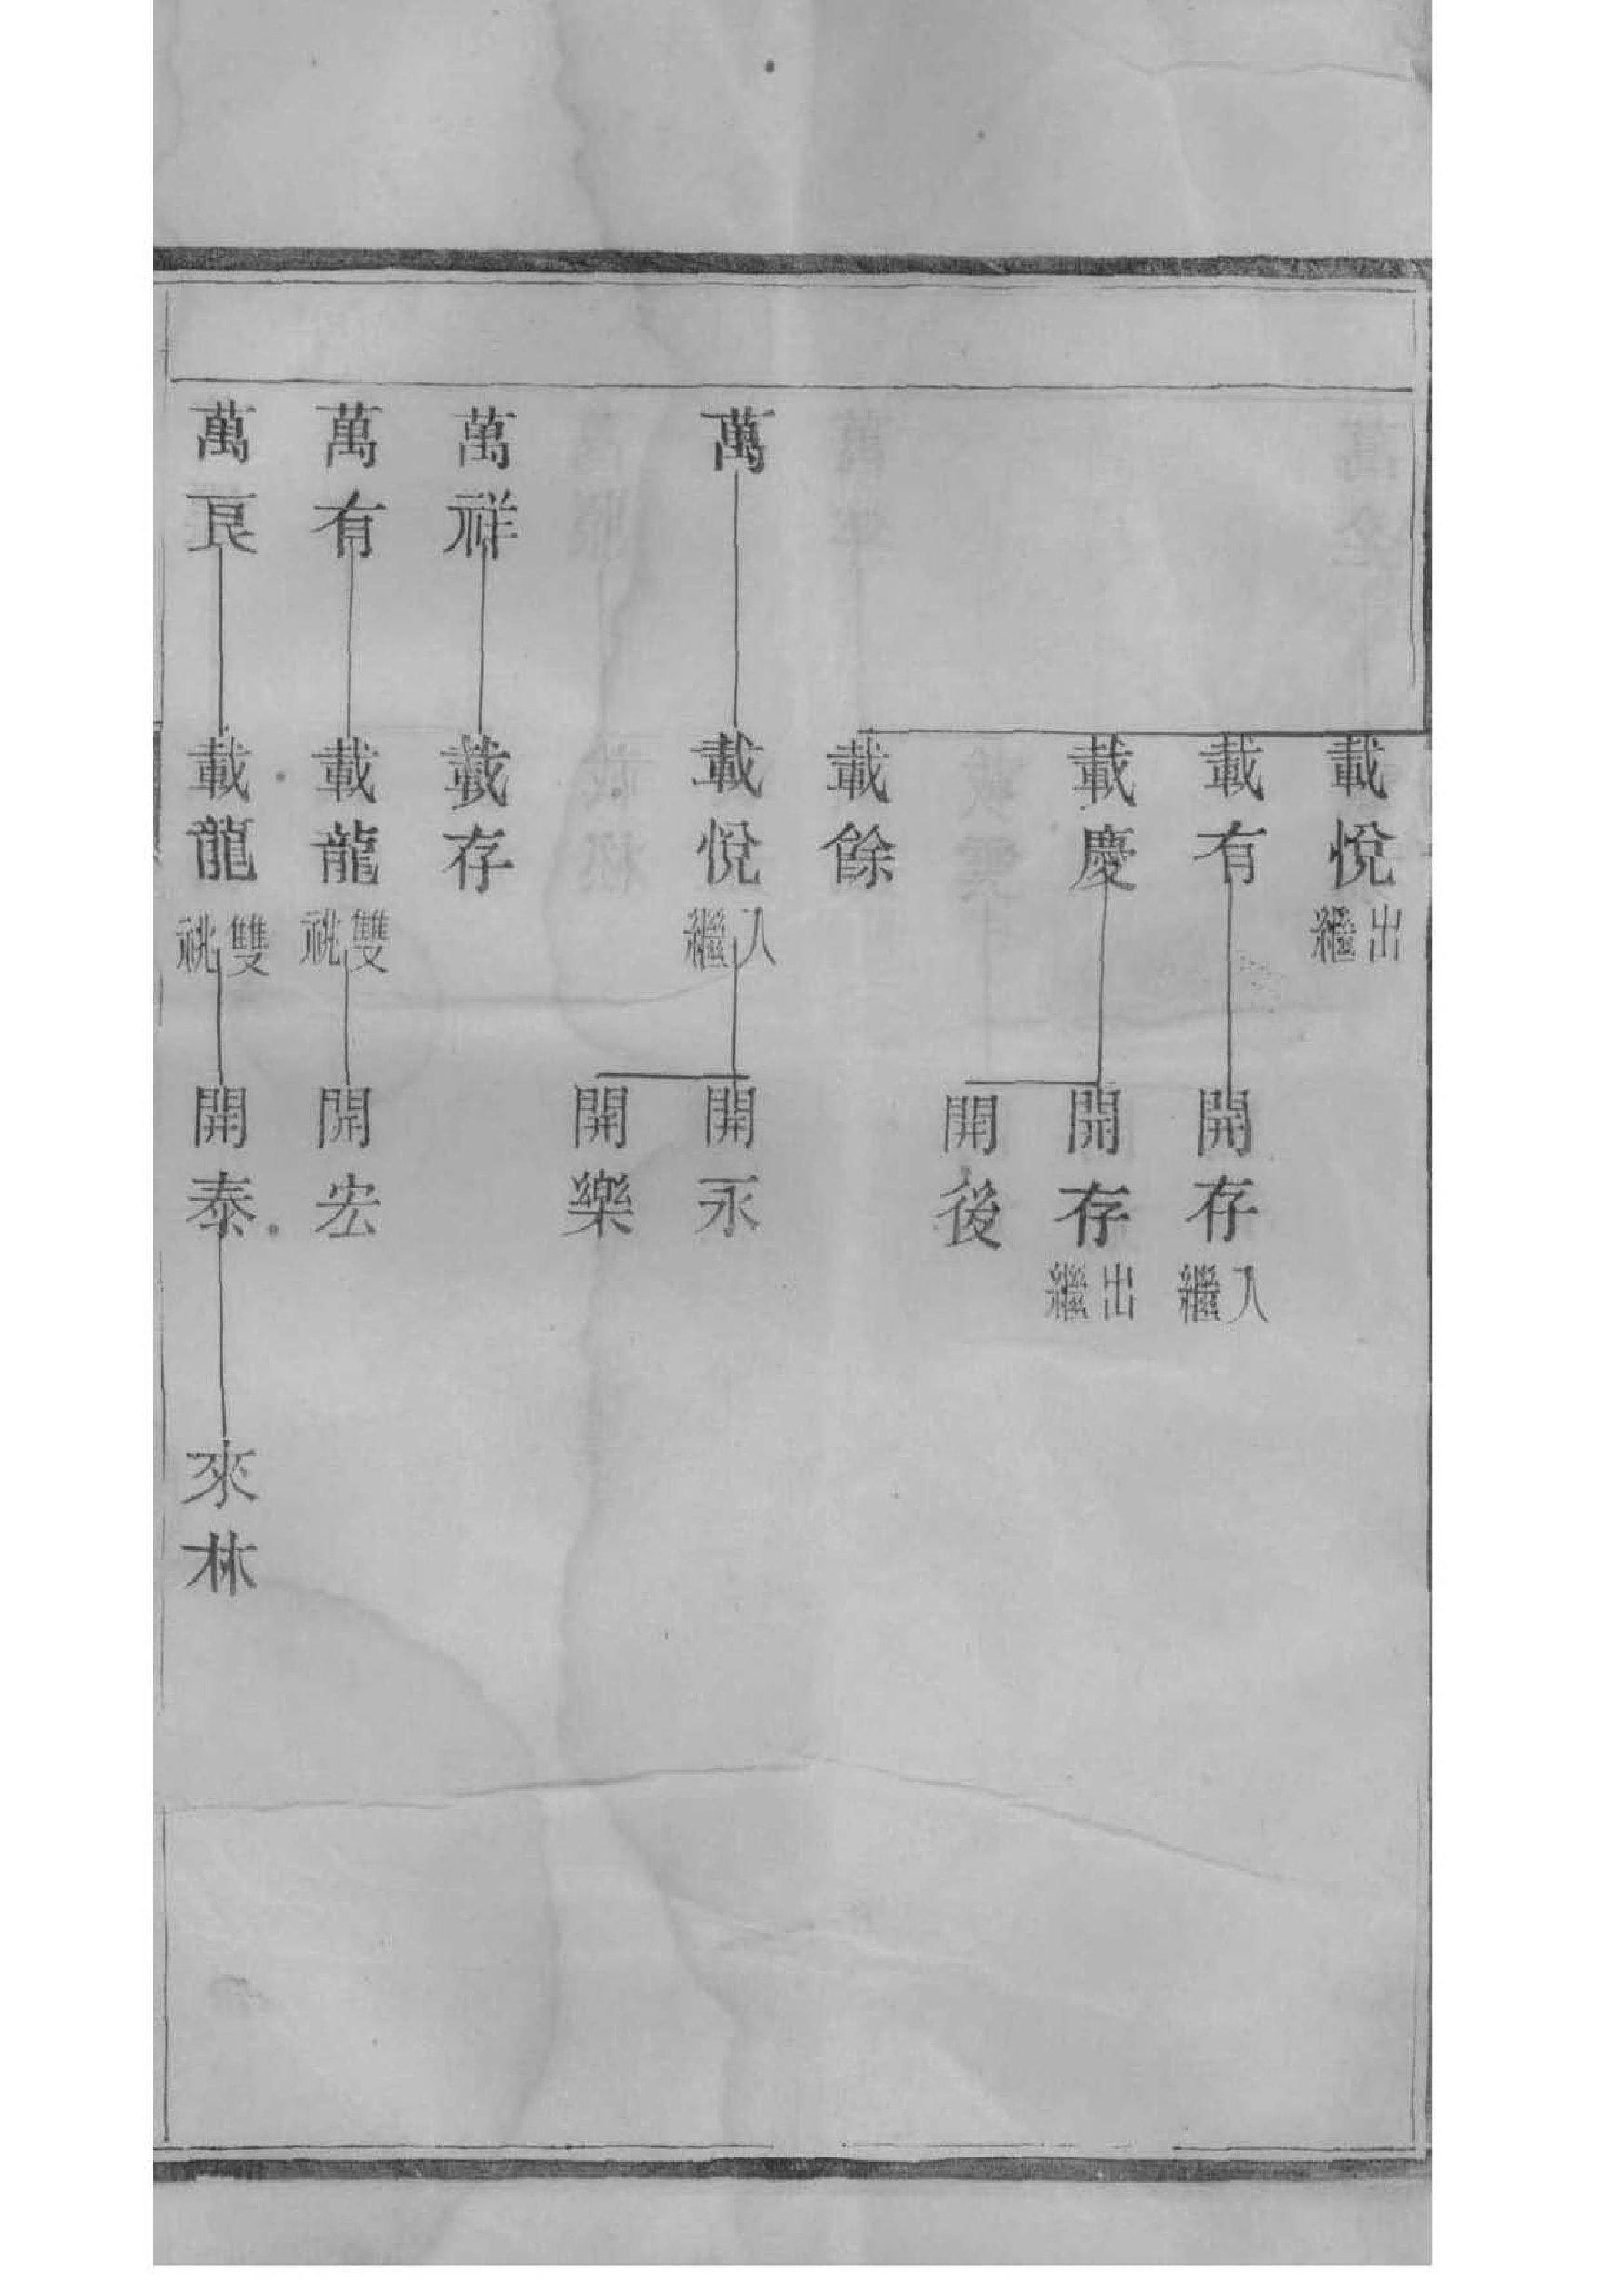 載悅出繼
載有
開存入繼
載慶
開存出繼
開後
載餘
萬
載悅入繼
開永
開樂
萬祥
載存
萬有
載龍雙祧
開宏
萬良
載龍雙祧
開泰
來林